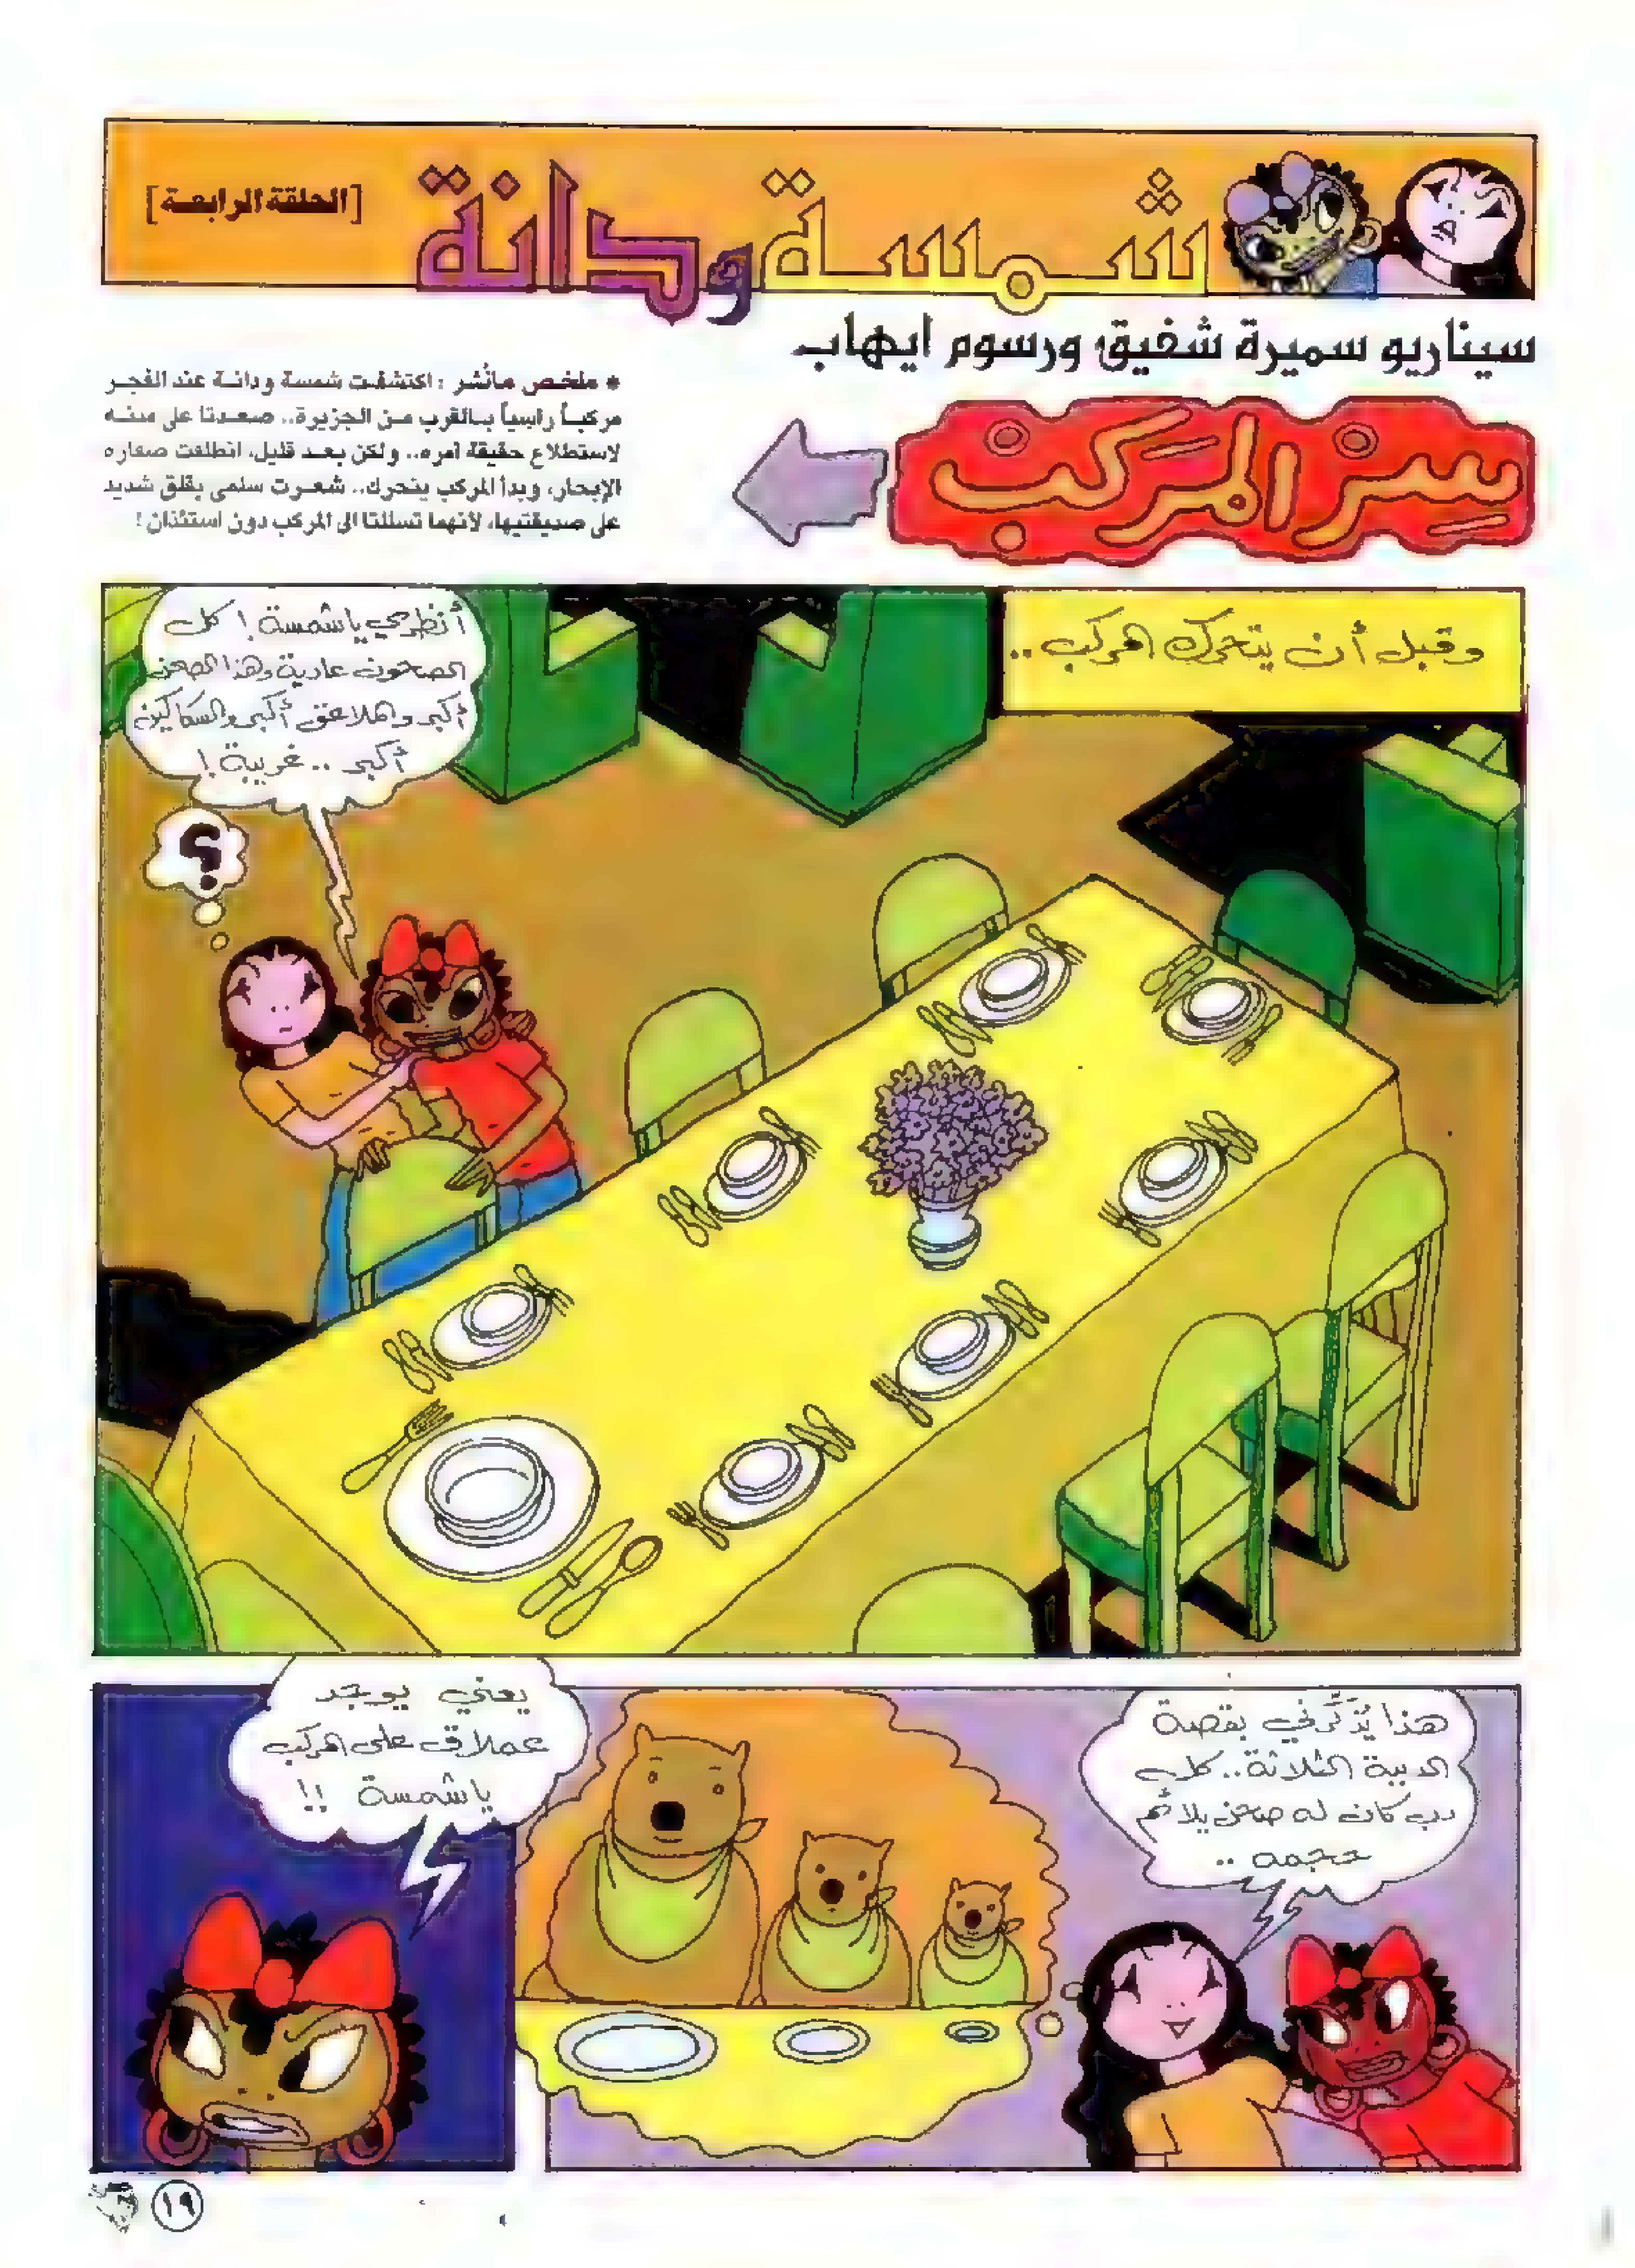 شمسة ودانة
[الحلقة الرابعة]
سيناريو سميرة شفيق ورسوم ايهاب
سِر المَركب
* ملخص مانُشر : اكتشفت شمسة ودانة عند الفجر
مركباً راسياً بالقرب من الجزيرة.. صعدتا على متنه
لاستطلاع حقيقة أمره.. ولكن بعد قليل، انطلقت صفارة
الإبحار، وبدأ المركب يتحرك.. شعرت سلمى بقلق شديد
على صديقتيها، لأنهما تسللتا الى المركب دون استئذان !
وقبل أن يتحرك المركب ..
أنظري ياشمسة ! كل
الصحون عادية وهذا الصحن
أكبر والملاعق أكبر والسكاكين
أكبر .. غريبة !
؟
هذا يُذَكِّرني بقصة
الدببة الثلاثة .. كل
دب كان له صحن يلائم
حجمه ..
يعني يوجد
عملاق على المركب
ياشمسة !!
١٩